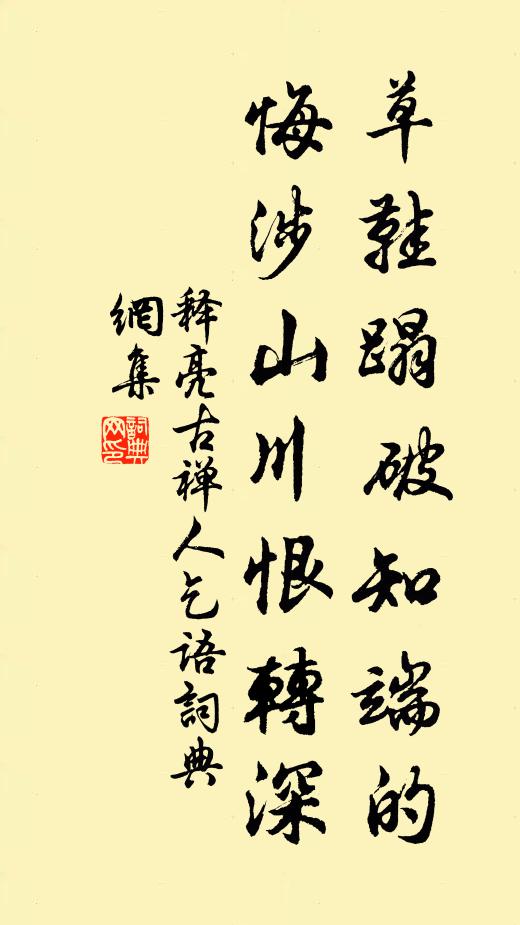 草鞋蹋破知端的
悔涉山川恨轉深
释亮古禅人乞语詞典
網集
詞典
网印